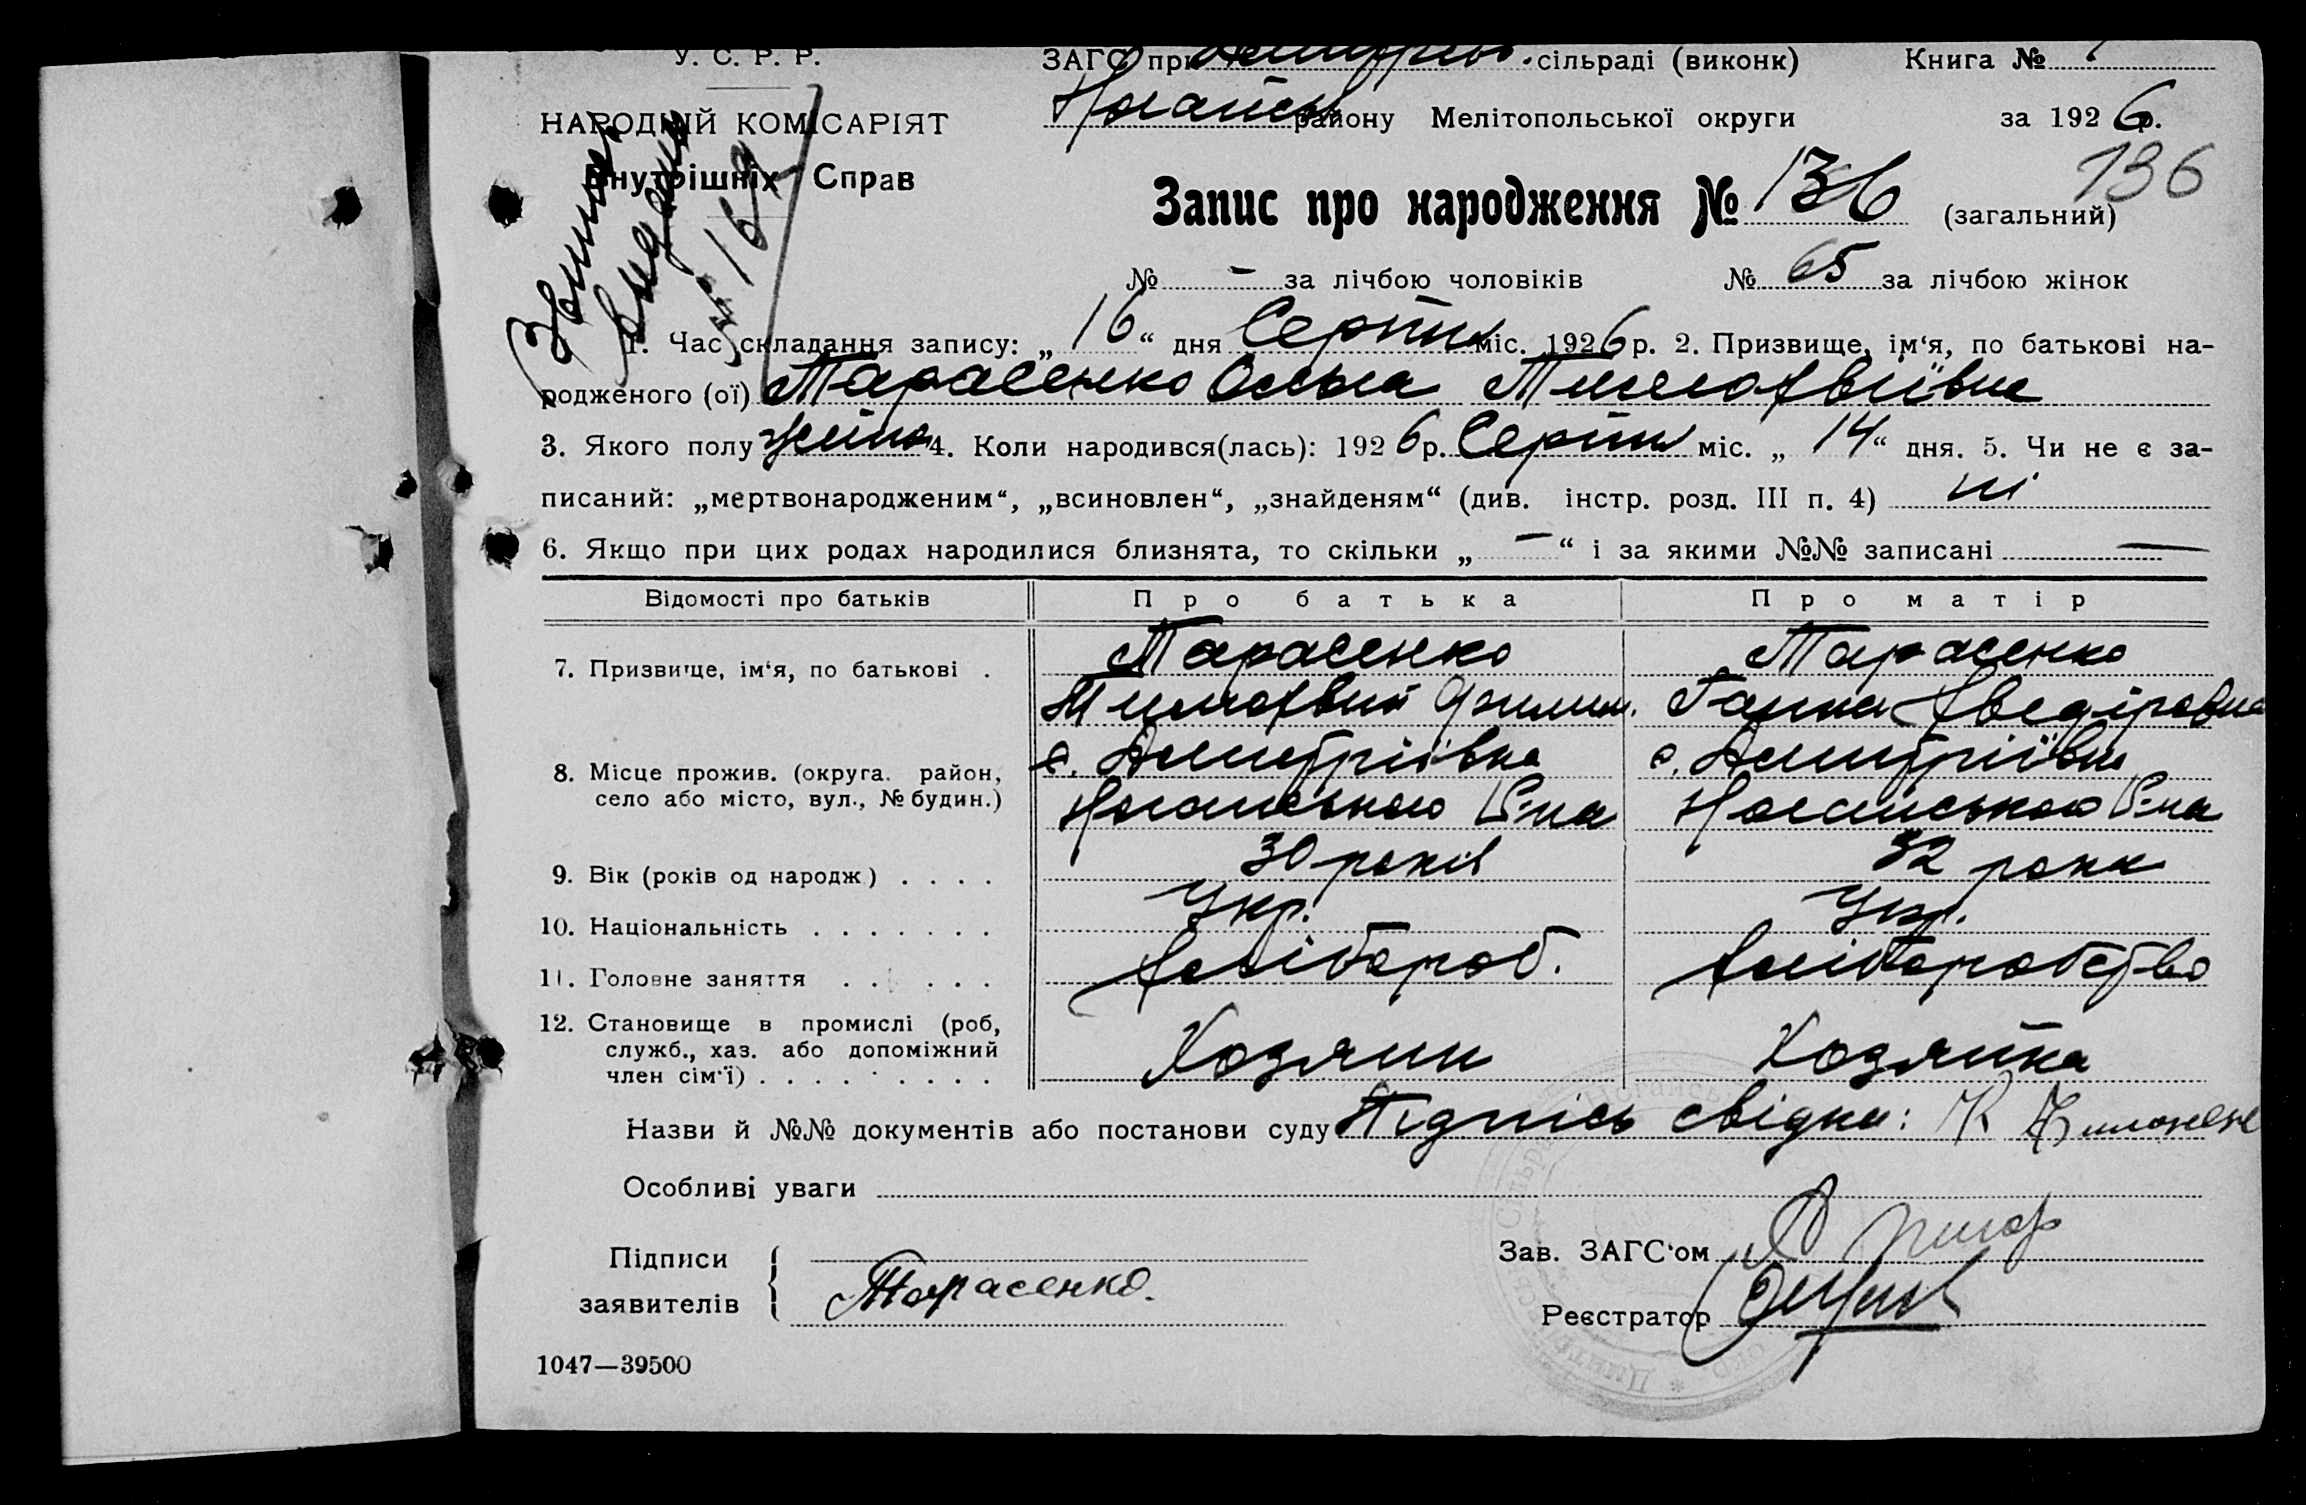 У. С. Р. Р.
НАРОДНІЙ КОМІСАРІЯТ
Внутрішніх Справ
ЗАГС при сільраді (виконк) Книга №
району Мелітопольської округи за 1926 р.
136
Запис про народження № 136 (загальний)
№ — за лічбою чоловіків № 65 за лічбою жінок
1. Час складання запису: „16“ дня Серпня міс. 1926 р. 2. Призвище, ім‘я, по батькові на-
родженого (ої) Тарасенко Ольга Тимофвіївна
3. Якого полу жіноч 4. Коли народився(лась): 1926 р. Серпня міс. „14“ дня. 5. Чи не є за-
писаний: „мертвонародженим“, „всиновлен“, „знайденям“ (див. інстр. розд. III п. 4) ні
6. Якщо при цих родах народилися близнята, то скільки „—“ і за якими №№ записані —
Відомості про батьків Про батька Про матір
7. Призвище, ім‘я, по батькові . Тарасенко Тарасенко
Тимофвий Филим. Ганна
8. Місце прожив. (округа, район, с. Дмитріівка с. Дмитріівка
село або місто, вул., № будин.) Ногайського Р-на Ногайського Р-на
9. Вік (років од народж) . . . . 30 років 32 роки
10. Національність . . . . . . . Укр. Укр.
11. Головне заняття . . . . . . хлібороб. хліборобство
12. Становище в промислі (роб, Хозяин Хозяйка
служб., хаз. або допоміжний
член сім‘ї) . . . . . . . . .
Назви й №№ документів або постанови суду Підпісь свідка: К
Особливі уваги
Підписи
заявителів Тарасенко.
Зав. ЗАГС‘ом
Реєстратор
1047—39500